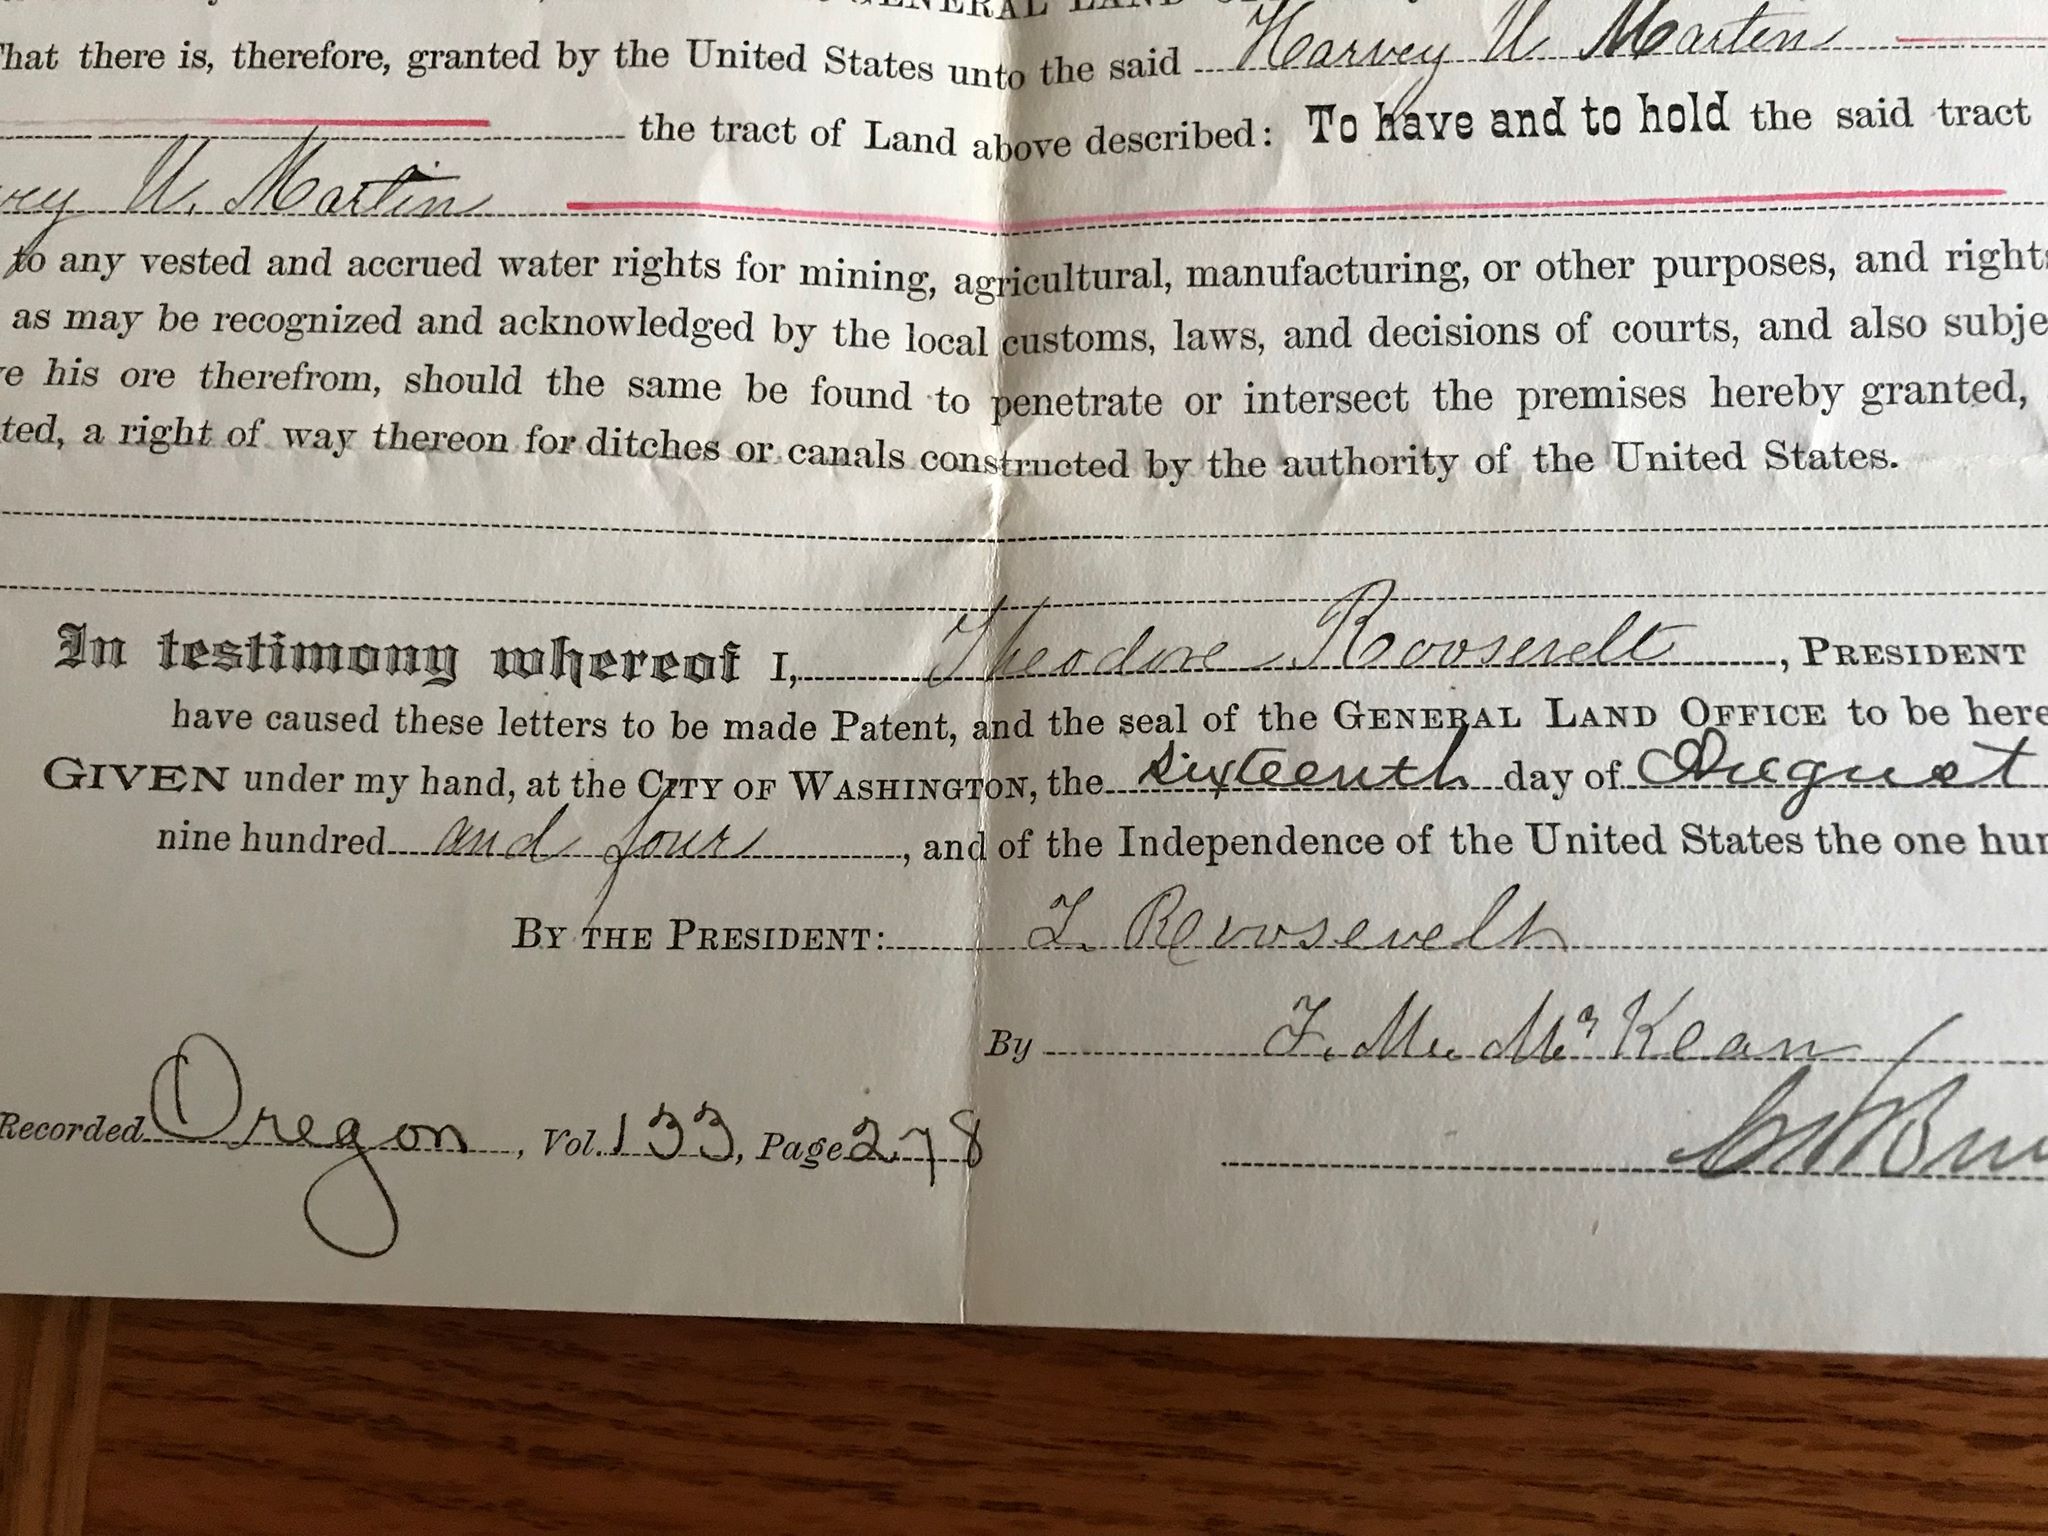 GENERAL LAND
That there is, therefore, granted by the United States unto the said Harvey W. Martin
the tract of Land above described: To have and to hold the said tract
vey W. Martin
to any vested and accrued water rights for mining, agricultural, manufacturing, or other purposes, and rights
as may be recognized and acknowledged by the local customs, laws, and decisions of courts, and also subje
ve his ore therefrom, should the same be found to penetrate or intersect the premises hereby granted,
ted, a right of way thereon for ditches or canals constructed by the authority of the United States.
In testimony whereof I, Theodore Roosevelt, PRESIDENT
have caused these letters to be made Patent, and the seal of the GENERAL LAND OFFICE to be here
GIVEN under my hand, at the CITY OF WASHINGTON, the sixteenth day of August
nine hundred and four, and of the Independence of the United States the one hun
BY THE PRESIDENT: T. Roosevelt
By F. M. McKean
Recorded Oregon, Vol. 133, Page 278